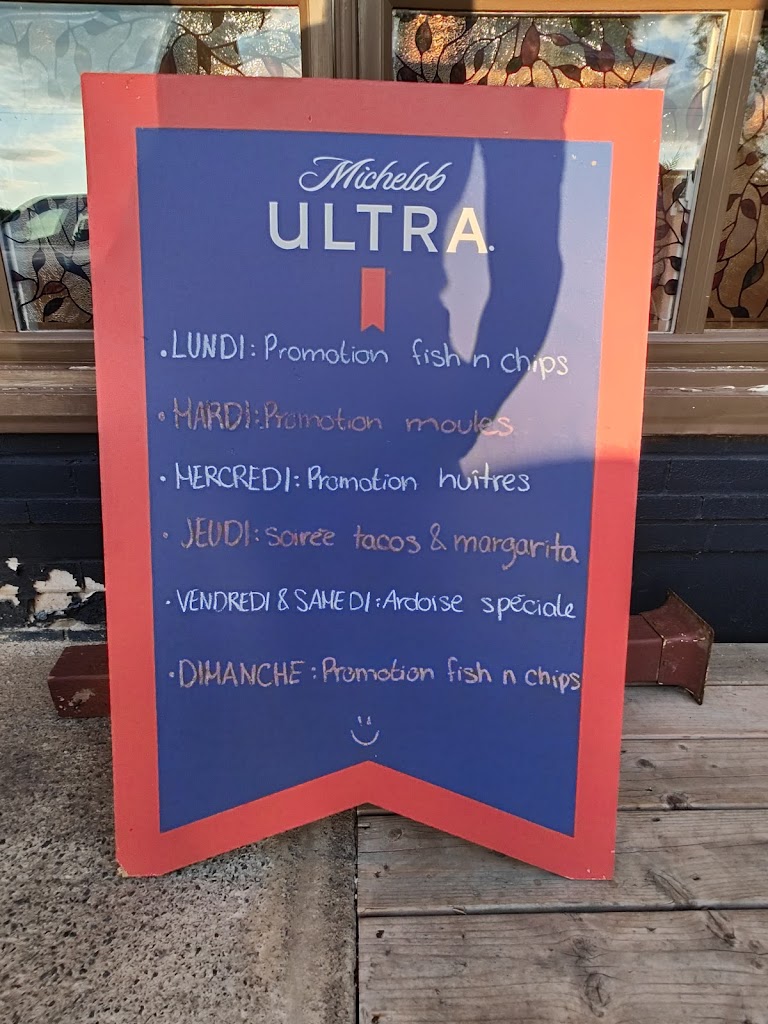 Michelob
ULTRA.
• LUNDI: Promotion fish n chips
• MARDI: Promotion moules
• MERCREDI: Promotion huîtres
• JEUDI: soirée tacos & margarita
• VENDREDI & SAMEDI: Ardoise spéciale
• DIMANCHE: Promotion fish n chips